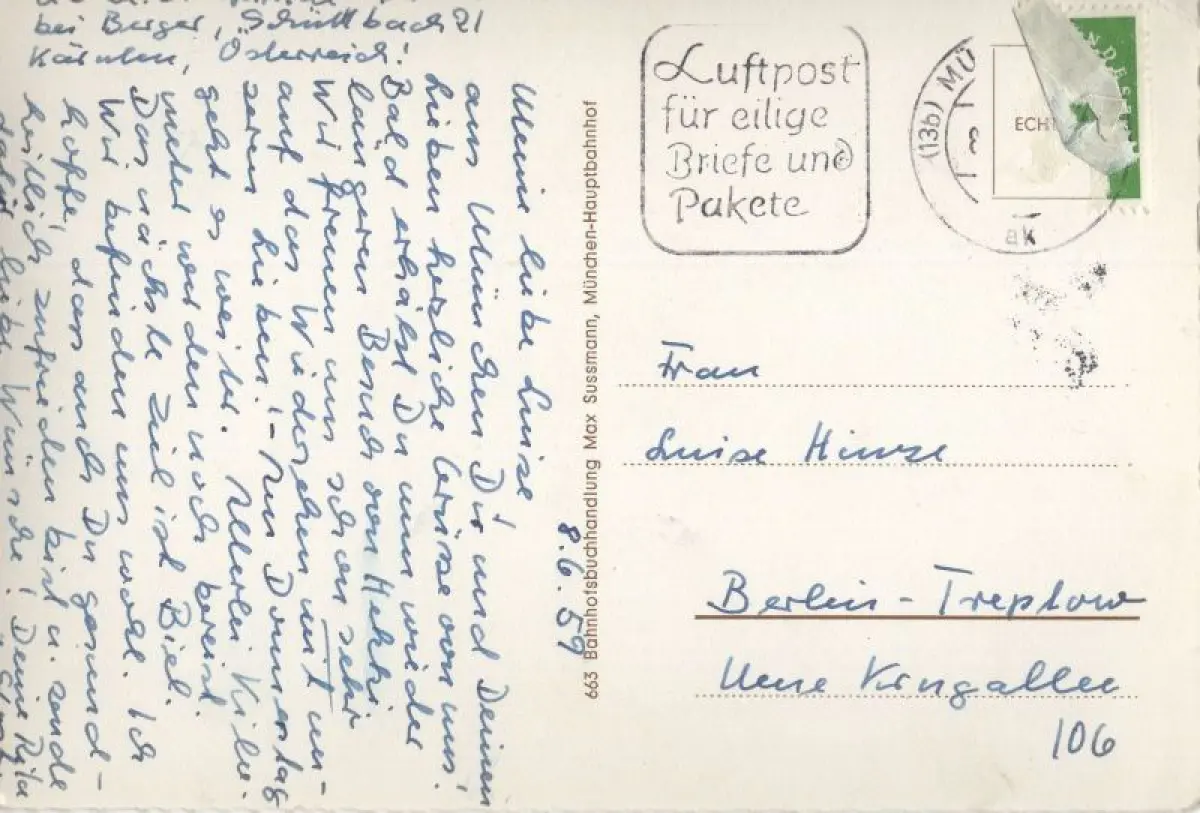 bei Berger, Schüttbach 21
Kärnten, Österreich!
Meine liebe Luise
aus München Dir und Deinen
Lieben herzliche Grüsse von uns!
Bald erhälst Du nun wieder
längeren Besuch von Hekki
Wir freuen uns schon sehr
auf das Wiedersehen mit un-
seren Lieben! - Am Donnerstag
geht es weiter. Allerlei Kilo-
meter werden noch bereist.
Das nächste Ziel ist Biel.
Wir befinden uns wohl. Ich
hoffe, dass auch Du gesund-
heitlich zufrieden bist u. sende
dafür liebe Wünsche! Deine Ryta
8.6.59
663 Bahnhofsbuchhandlung Max Sussmann, München-Hauptbahnhof
Luftpost
für eilige
Briefe und
Pakete
(13b) MÜ
a
ak
ECH
NDES
Frau
Luise Hinze
Berlin-Treptow
Neue Krugallee
106